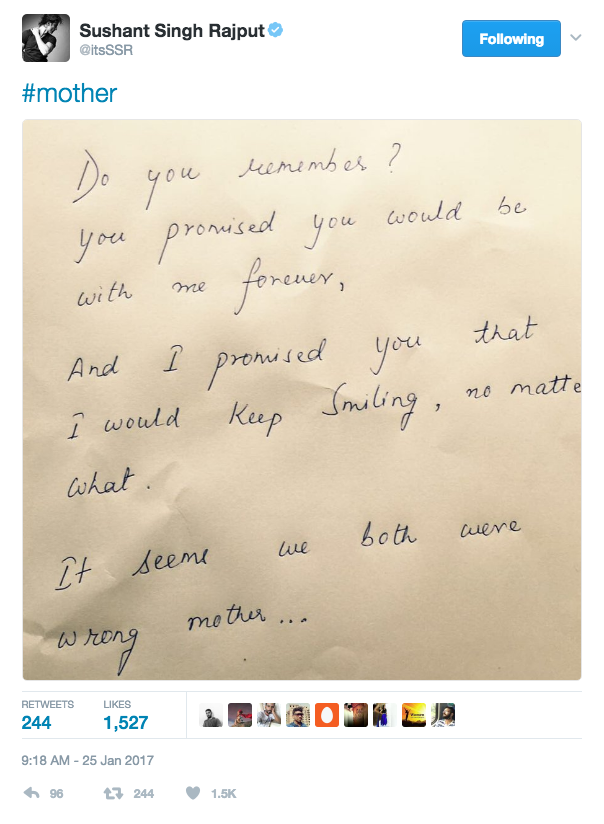 Sushant Singh Rajput
@itsSSR
Following
#mother
Do you remember?
you promised you would be
with me forever,
And I promised you that
I would Keep Smiling, no matte
what.
It seems we both were
wrong mother...
RETWEETS LIKES
244 1,527
9:18 AM - 25 Jan 2017
96 244 1.5K